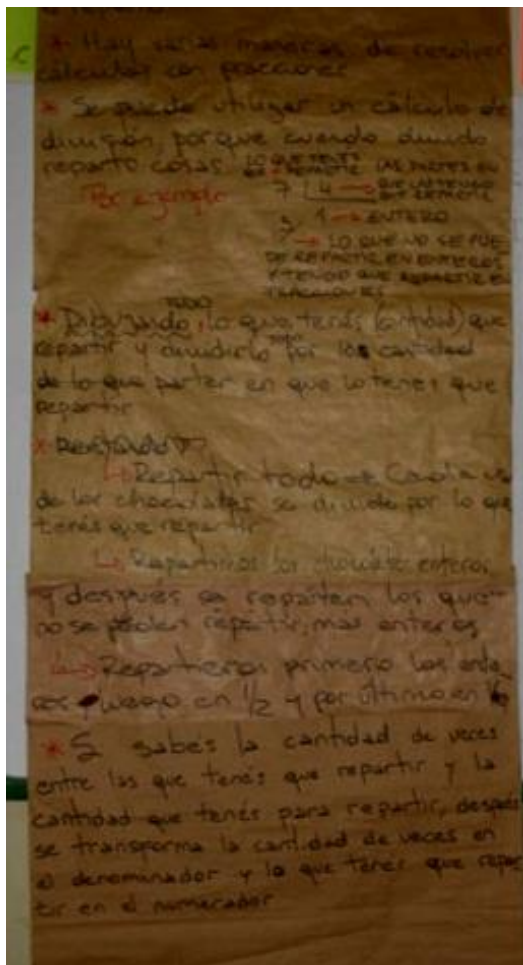 el reparto
* Hay varias maneras de resolver
cálculos con fracciones
* Se puede utilizar un cálculo de
división, porque cuando divido
reparto cosas.
LO QUE TENÉS
QUE REPARTIR
LAS PARTES EN
QUE LAS TENGO
QUE REPARTIR
Por ejemplo
7 4
3 1 → ENTERO
→ LO QUE NO SE PUE-
DE REPARTIR EN ENTEROS
Y TENGO QUE REPARTIR EN
FRACCIONES
TODO
* Dibujando, lo que tenés (cantidad) que
repartir y dividirlo por la cantidad
de lo que partes en que lo tenés que
repartir
*
↳ Repartir todo Cada uno
de los chocolates se divide por lo que
tenés que repartir
↳ Repartimos los chocolate enteros
y después se reparten los que
no se pueden repartir, mas enteros
↳ Repartieron primero los ente
ros luego en 1/2 y por último en
* Si sabés la cantidad de veces
entre las que tenés que repartir y la
cantidad que tenés para repartir, después
se transforma la cantidad de veces en
el denominador y lo que tenés que repar
tir en el numerador